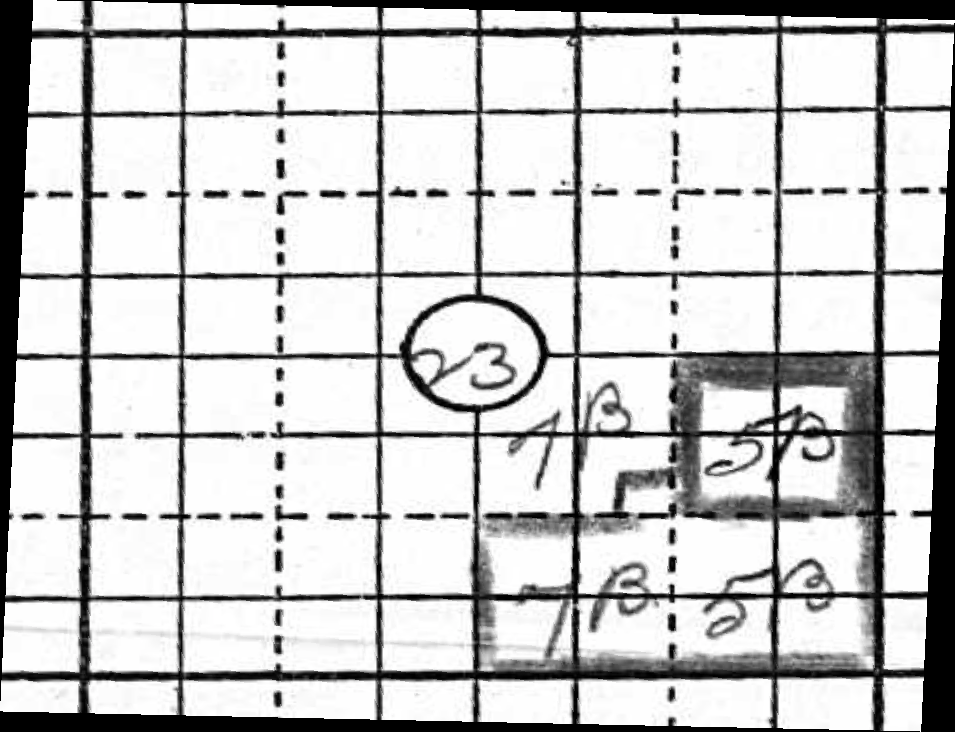 23
7B 5B
7B 5B